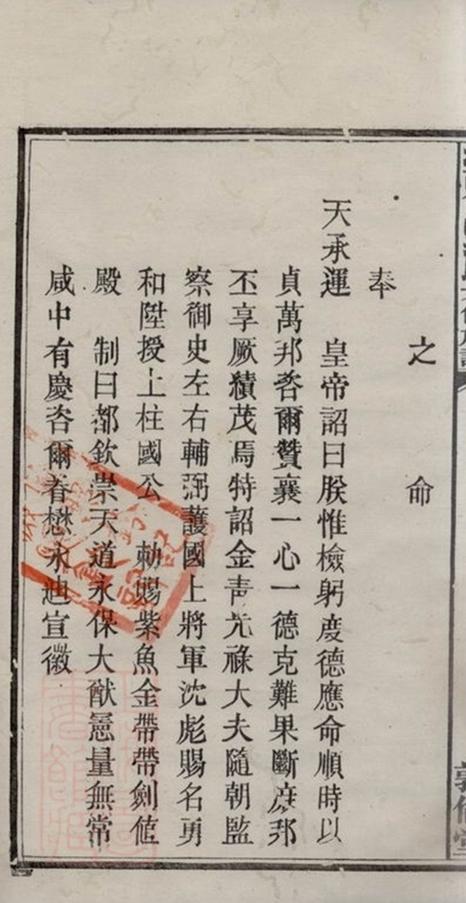 之命
奉
天承運 皇帝詔曰朕惟檢躬度德應命順時以
貞萬邦咨爾贊襄一心一德克難果斷庶邦
丕享厥績茂焉特詔金青光祿大夫隨朝監
察御史左右輔弼護國上將軍沈彪賜名勇
和陞授上柱國公 勅賜紫魚金帶帶劍値
殿 制曰都欽崇天道永保大猷憲量無常
咸中有慶咨爾眷懋永迪宣徽